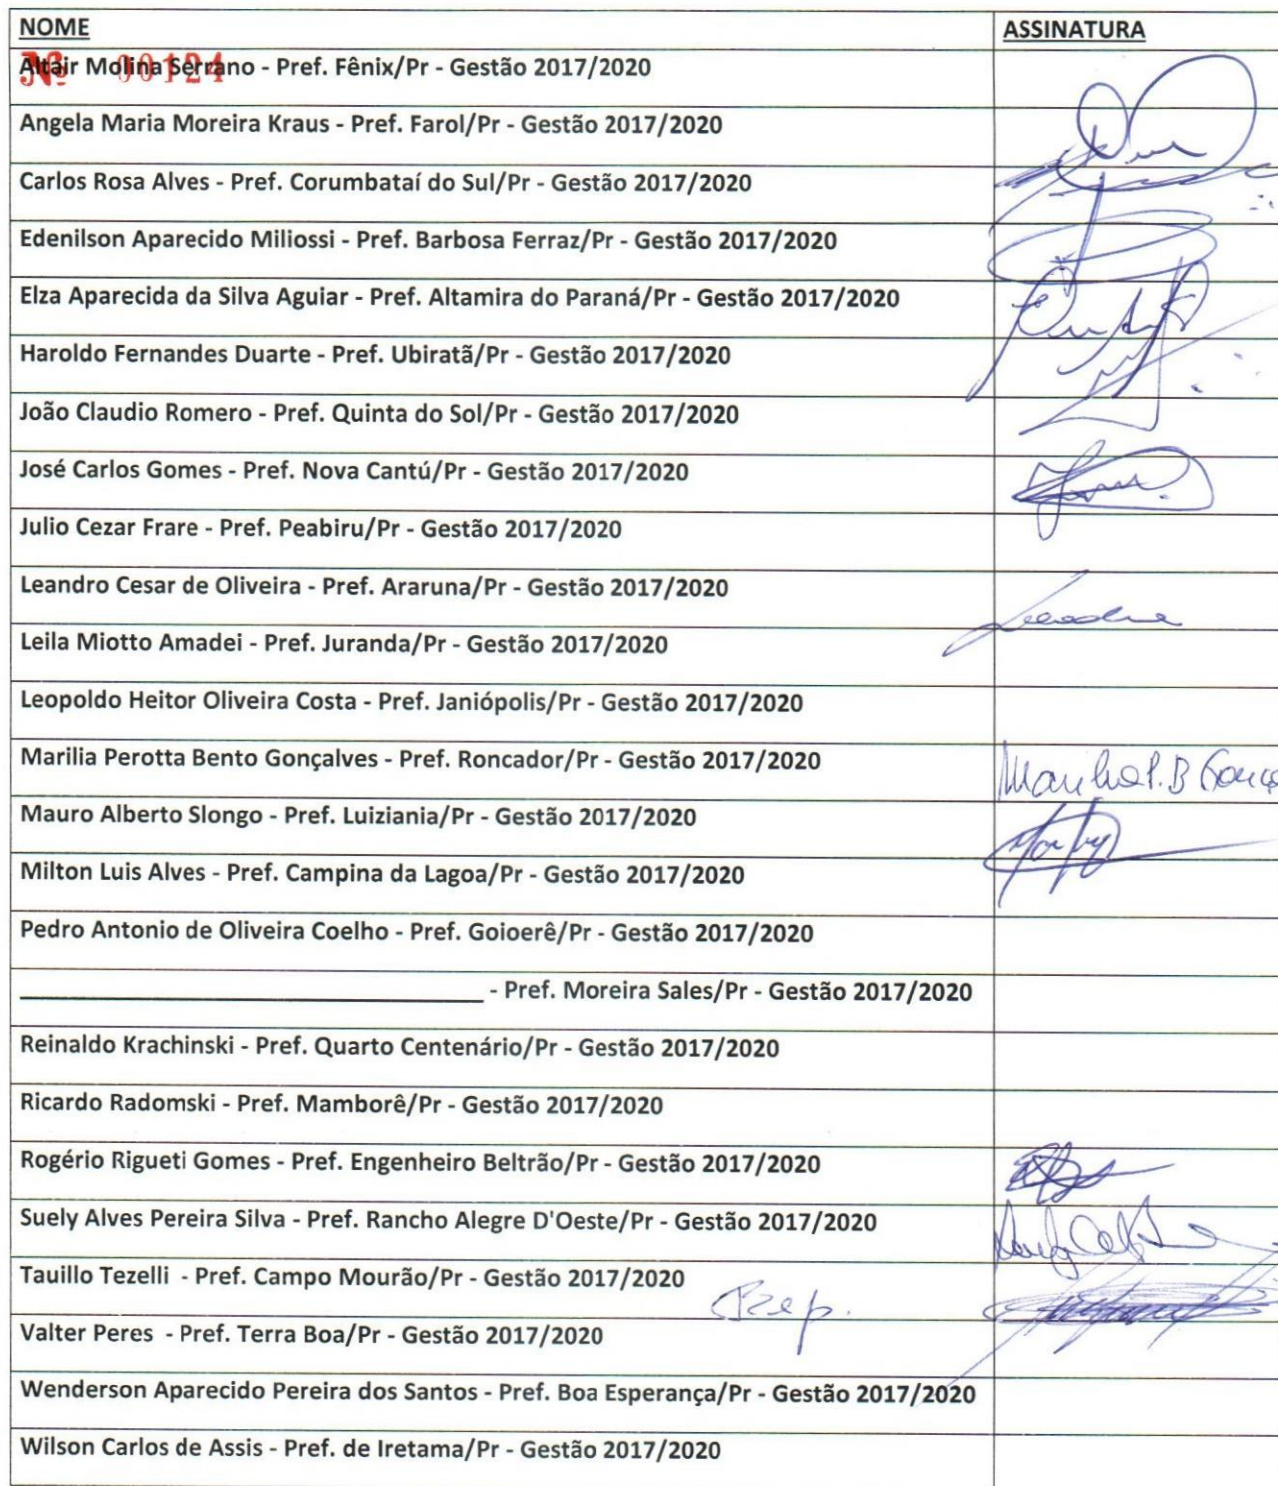 NOME ASSINATURA
Nº 00124
Altair Molina Serrano - Pref. Fênix/Pr - Gestão 2017/2020
Angela Maria Moreira Kraus - Pref. Farol/Pr - Gestão 2017/2020
Carlos Rosa Alves - Pref. Corumbataí do Sul/Pr - Gestão 2017/2020
Edenilson Aparecido Miliossi - Pref. Barbosa Ferraz/Pr - Gestão 2017/2020
Elza Aparecida da Silva Aguiar - Pref. Altamira do Paraná/Pr - Gestão 2017/2020
Haroldo Fernandes Duarte - Pref. Ubiratã/Pr - Gestão 2017/2020
João Claudio Romero - Pref. Quinta do Sol/Pr - Gestão 2017/2020
José Carlos Gomes - Pref. Nova Cantú/Pr - Gestão 2017/2020
Julio Cezar Frare - Pref. Peabiru/Pr - Gestão 2017/2020
Leandro Cesar de Oliveira - Pref. Araruna/Pr - Gestão 2017/2020
Leila Miotto Amadei - Pref. Juranda/Pr - Gestão 2017/2020
Leopoldo Heitor Oliveira Costa - Pref. Janiópolis/Pr - Gestão 2017/2020
Marilia Perotta Bento Gonçalves - Pref. Roncador/Pr - Gestão 2017/2020
Mauro Alberto Slongo - Pref. Luiziania/Pr - Gestão 2017/2020
Milton Luis Alves - Pref. Campina da Lagoa/Pr - Gestão 2017/2020
Pedro Antonio de Oliveira Coelho - Pref. Goioerê/Pr - Gestão 2017/2020
- Pref. Moreira Sales/Pr - Gestão 2017/2020
Reinaldo Krachinski - Pref. Quarto Centenário/Pr - Gestão 2017/2020
Ricardo Radomski - Pref. Mamborê/Pr - Gestão 2017/2020
Rogério Rigueti Gomes - Pref. Engenheiro Beltrão/Pr - Gestão 2017/2020
Suely Alves Pereira Silva - Pref. Rancho Alegre D'Oeste/Pr - Gestão 2017/2020
Tauillo Tezelli - Pref. Campo Mourão/Pr - Gestão 2017/2020
Valter Peres - Pref. Terra Boa/Pr - Gestão 2017/2020
Wenderson Aparecido Pereira dos Santos - Pref. Boa Esperança/Pr - Gestão 2017/2020
Wilson Carlos de Assis - Pref. de Iretama/Pr - Gestão 2017/2020